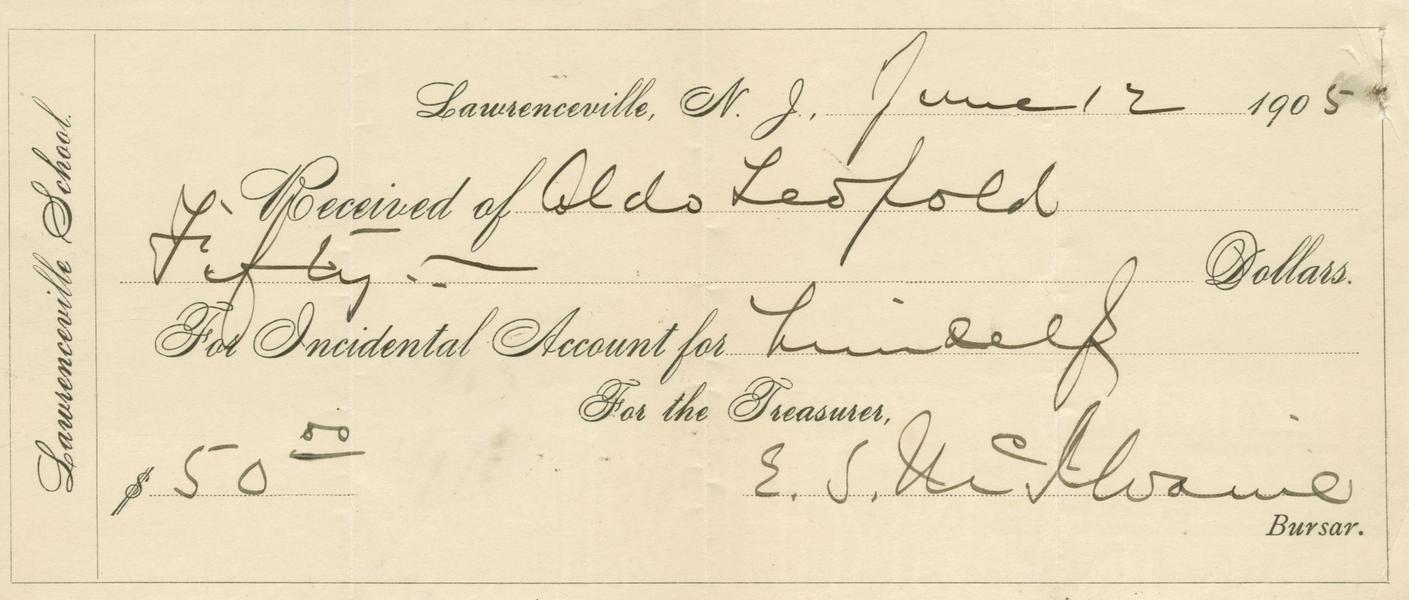 Lawrenceville School.
Lawrenceville, N. J., June 12 1905
Received of Aldo Leopold
Fifty.— Dollars.
For Incidental Account for himself
For the Treasurer,
$ 50 00 E. S. McIlvaine
Bursar.